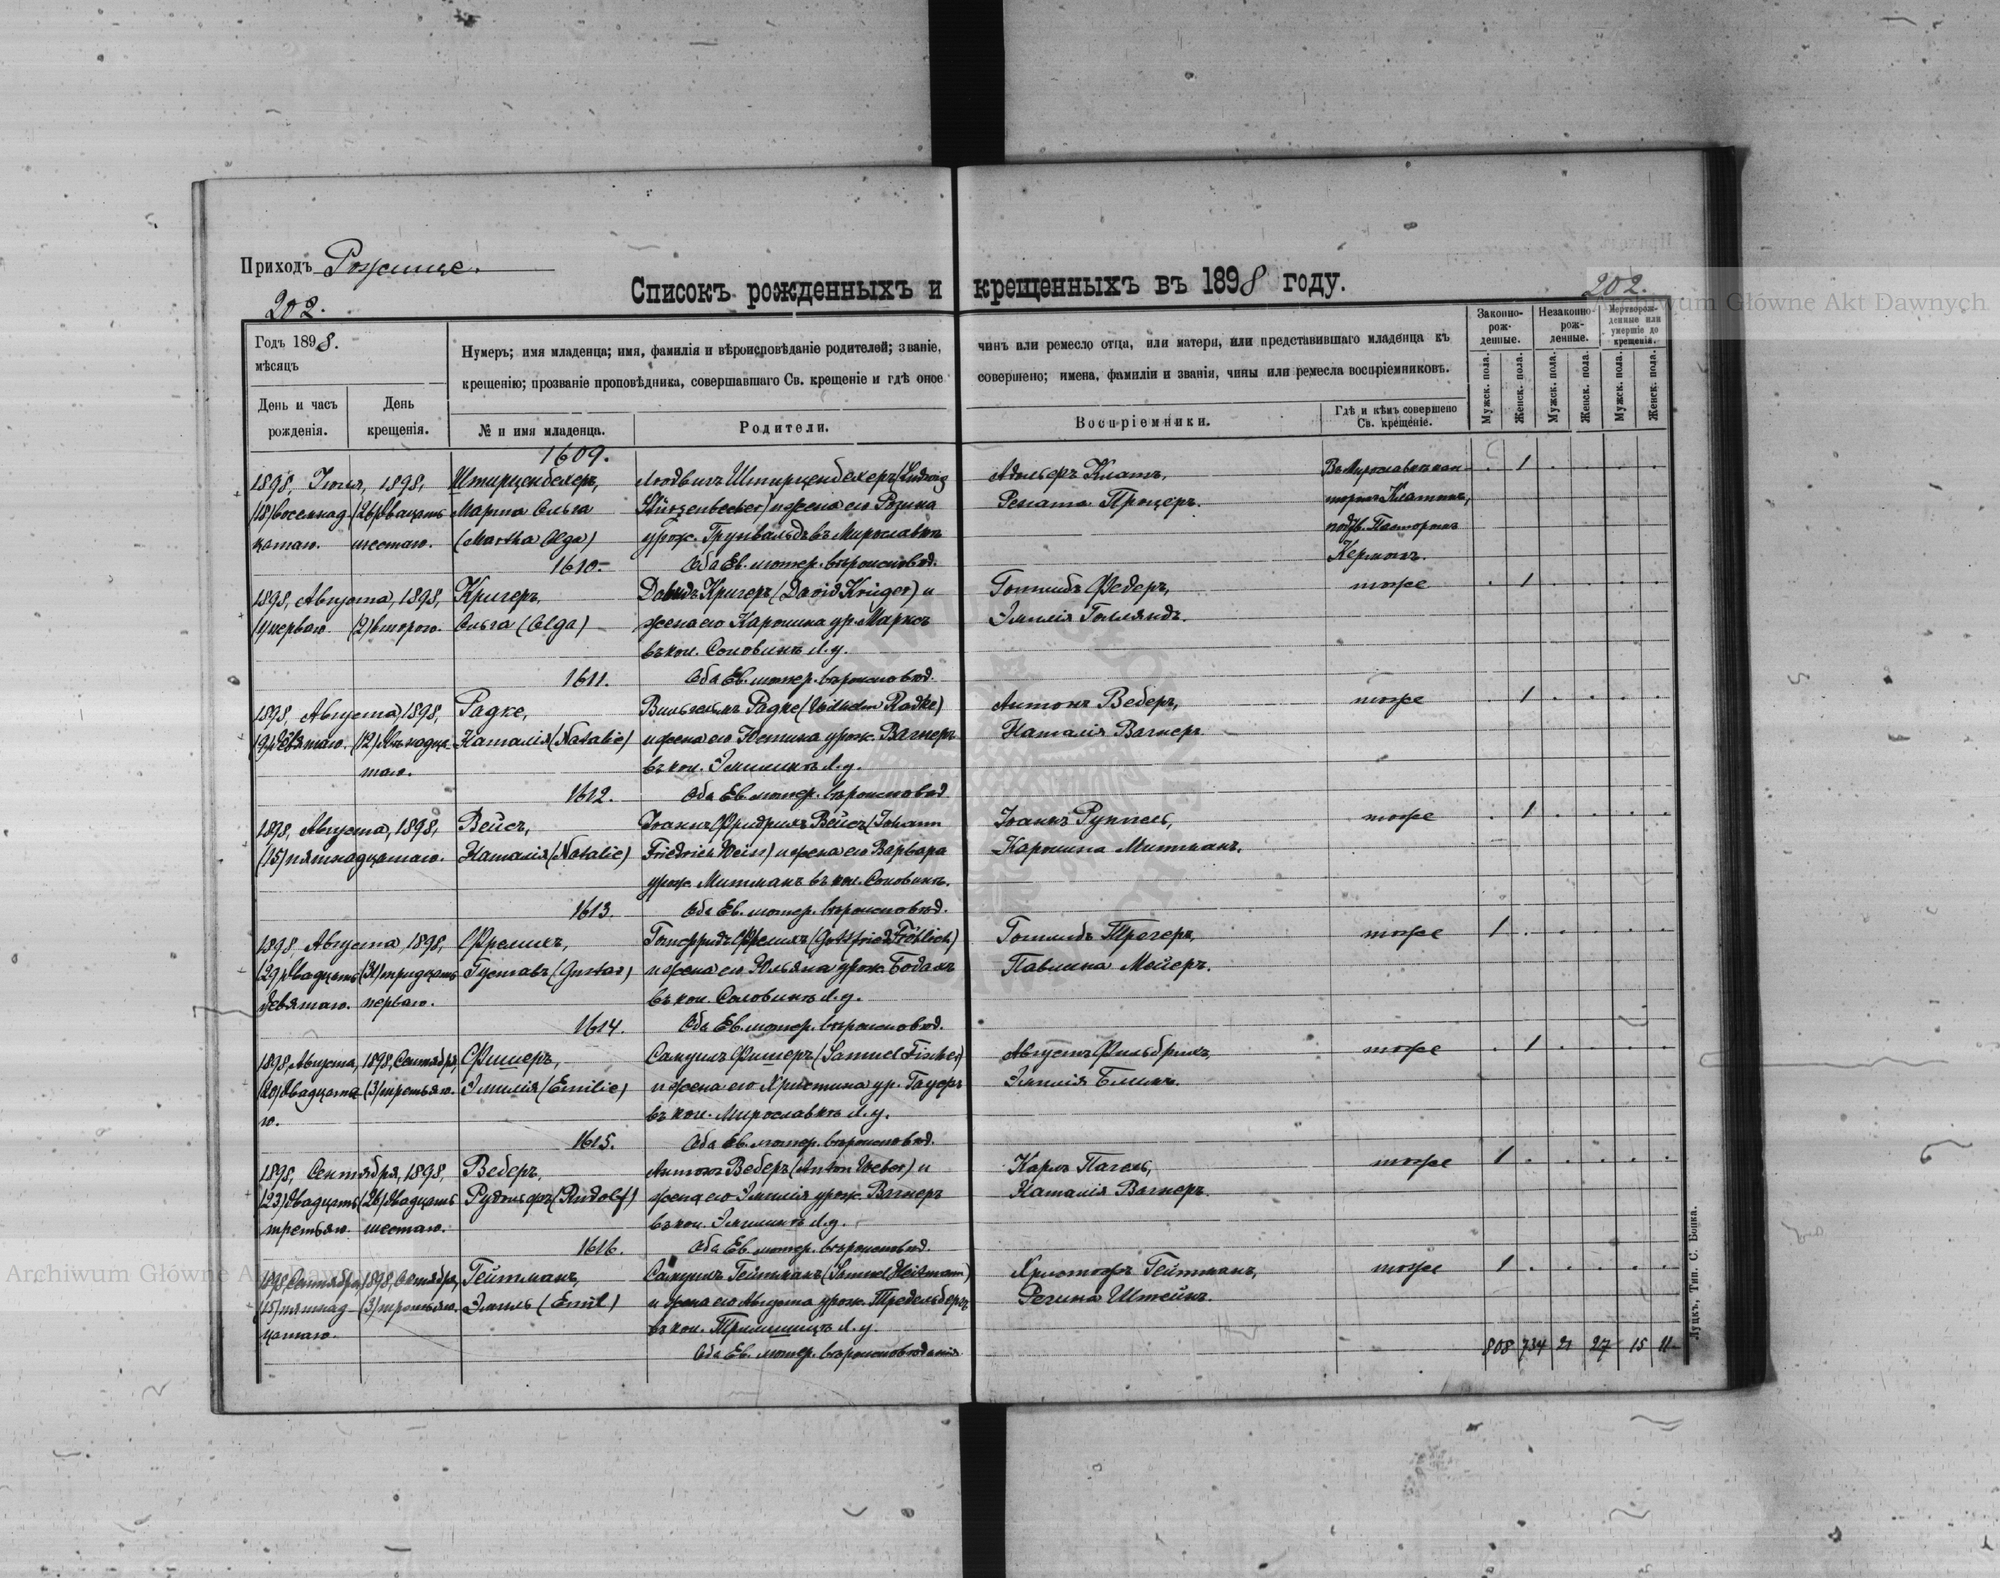 Приходъ Рожище.
202.
Списокъ рожденныхъ и крещенныхъ въ 1898 году.
202.
Archiwum Główne Akt Dawnych
Годъ 1898.
мѣсяцъ
День и часъ рожденія.
День крещенія.
Нумеръ; имя младенца; имя, фамилія и вѣроисповѣданіе родителей; званіе,
чинъ или ремесло отца, или матери, или представившаго младенца къ
крещенію; прозваніе проповѣдника, совершавшаго Св. крещеніе и гдѣ оное
совершено; имена, фамиліи и званія, чины или ремесла воспріемниковъ.
№ и имя младенца.
Родители.
Воспріемники.
Гдѣ и кѣмъ совершено Св. крещеніе.
Законно-рож-денные.
Незаконно-рож-денные.
Мертворож-денные или умершіе до крещенія.
Мужск. пола.
Женск. пола.
Мужск. пола.
Женск. пола.
Мужск. пола.
Женск. пола.
1609.
1898, Іюля, 1898, Штирценбехеръ, Людвигъ Штирценбехеръ (Ludwig Адольфъ Клаттъ, 1
(18) восемнад- (26) двадцать Марта Ольга Stürzenbecher) и жена его Розина Рената Процеръ.
цатаго. шестаго. (Martha Olga) урож. Грунвальдъ въ Мирославкѣ
подтв. Пасторомъ
Керномъ.
1610. Оба Ев. лютер. вѣроисповѣд.
1898, Августа, 1898, Кригеръ, Давидъ Кригеръ (David Krieger) и Готлибъ Федеръ, тоже 1
(1) перваго. (2) второго. Ольга (Olga) жена его Каролина ур. Марксъ Эмилія Голляндъ.
въ кол. Соловинъ Л. у.
1611. Оба Ев. лютер. вѣроисповѣд.
1898, Августа, 1898, Радке, Вильгельмъ Радке (Wilhelm Radke) Антонъ Веберъ, тоже 1
(9) девятаго. (12) двѣнадца- Наталія (Natalie) и жена его Юстина урож. Вагнеръ Наталія Вагнеръ
таго. въ кол. Эмилинъ Л. у.
1612. Оба Ев. лютер. вѣроисповѣд
1898, Августа, 1898, Вейсъ, Іоаннъ Фридрихъ Вейсъ (Johann Іоаннъ Руппель, тоже 1
(15) пятнадцатаго. Наталія (Natalie) Friedrich Weiss) и жена его Варвара Каролина Митманъ.
урож. Митманъ въ кол. Соловинъ.
1613. Оба Ев. лютер. вѣроисповѣд.
1898, Августа, 1898, Фрелихъ, Готфридъ Фрелихъ (Gottfried Fröhlich) Готлибъ Трегеръ, тоже 1
(29) двадцать (31) тридцать Густавъ (Gustav) и жена его Юльяна урож. Бодахъ Павлина Мейеръ.
девятаго. перваго. въ кол. Соловинъ Л. у.
1614. Оба Ев. лютер. вѣроисповѣд.
1898, Августа, 1898, Сентября, Фишеръ, Самуилъ Фишеръ (Samuel Fischer) Августъ Фильбрихъ, тоже 1
(20) двадцата- (3) третьяго. Эмилія (Emilie) и жена его Христина ур. Гауеръ Эмилія Блимъ.
го. въ кол. Мирославкѣ Л. у.
1615. Оба Ев. лютер. вѣроисповѣд.
1898, Сентября, 1898, Веберъ, Антонъ Веберъ (Anton Weber) и Карлъ Пагель, тоже 1
(23) двадцать (26) двадцать Рудольфъ (Rudolf) жена его Эмилія урож. Вагнеръ Наталія Вагнеръ.
третьяго. шестаго. въ кол. Эмилинъ Л. у.
1616. Оба Ев. лютер. вѣроисповѣд.
Archiwum Główne Akt Dawnych
Гейтманъ, Самуилъ Гейтманъ (Samuel Heitmann) Христофъ Гейтманъ, тоже 1
(15) пятнад- (3) Эмиль (Emil) и жена его Августа урож. Регина Штейнъ.
цатаго. въ кол. Л. у.
Оба Ев. лютер. вѣроисповѣданія
808 734 21 27 15 11
Луцкъ, Тип. С. Бонка.